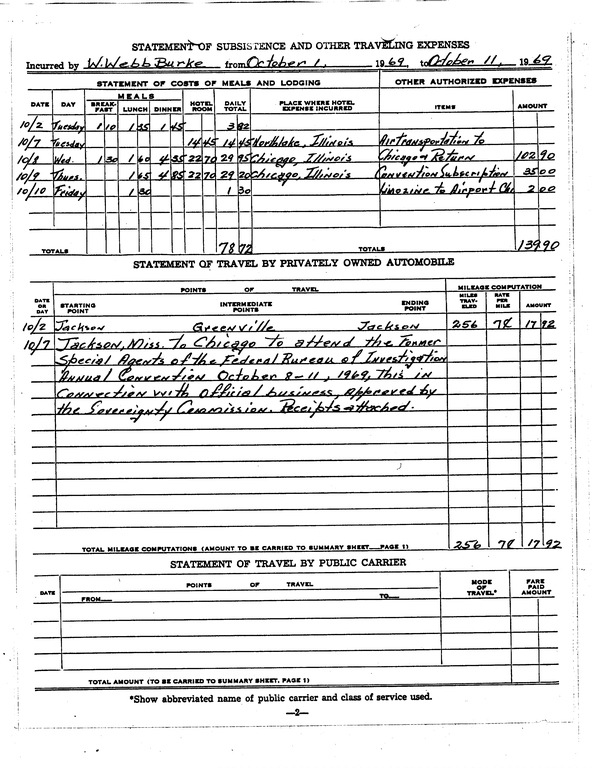 STATEMENT OF SUBSISTENCE AND OTHER TRAVELING EXPENSES
Incurred by W. Webb Burke from October 1, 1969, to October 11, 1969
STATEMENT OF COSTS OF MEALS AND LODGING OTHER AUTHORIZED EXPENSES
MEALS
DATE DAY BREAK-FAST LUNCH DINNER HOTEL ROOM DAILY TOTAL PLACE WHERE HOTEL EXPENSE INCURRED ITEMS AMOUNT
10/2 Tuesday 1 35 1 45 3 82
10/7 Tuesday 14 45 14 45 Northlake, Illinois Air transportation to
10/8 Wed. 1 30 1 60 4 35 22 70 29 95 Chicago, Illinois Chicago & Return 102 90
10/9 Thurs. 1 65 4 85 22 70 29 20 Chicago, Illinois Convention Subscription 35 00
10/10 Friday 1 30 1 30 Limozine to Airport Chi. 2 00
TOTALS 78 72 TOTALS 139.90
STATEMENT OF TRAVEL BY PRIVATELY OWNED AUTOMOBILE
POINTS OF TRAVEL MILEAGE COMPUTATION
DATE OR DAY STARTING POINT INTERMEDIATE POINTS ENDING POINT MILES TRAV-ELED RATE PER MILE AMOUNT
10/2 Jackson Greenville Jackson 256 7¢ 17 92
10/7 Jackson, Miss. To Chicago to attend the Former
Special Agents of the Federal Bureau of Investigation
Annual Convention October 8-11, 1969, This in
Connection with official business, approved by
the Sovereignty Commission. Receipts attached.
TOTAL MILEAGE COMPUTATIONS (AMOUNT TO BE CARRIED TO SUMMARY SHEET—PAGE 1) 256 7¢ 17 92
STATEMENT OF TRAVEL BY PUBLIC CARRIER
DATE POINTS OF TRAVEL MODE OF TRAVEL* FARE PAID AMOUNT
FROM— TO—
TOTAL AMOUNT (TO BE CARRIED TO SUMMARY SHEET. PAGE 1)
*Show abbreviated name of public carrier and class of service used.
—2—